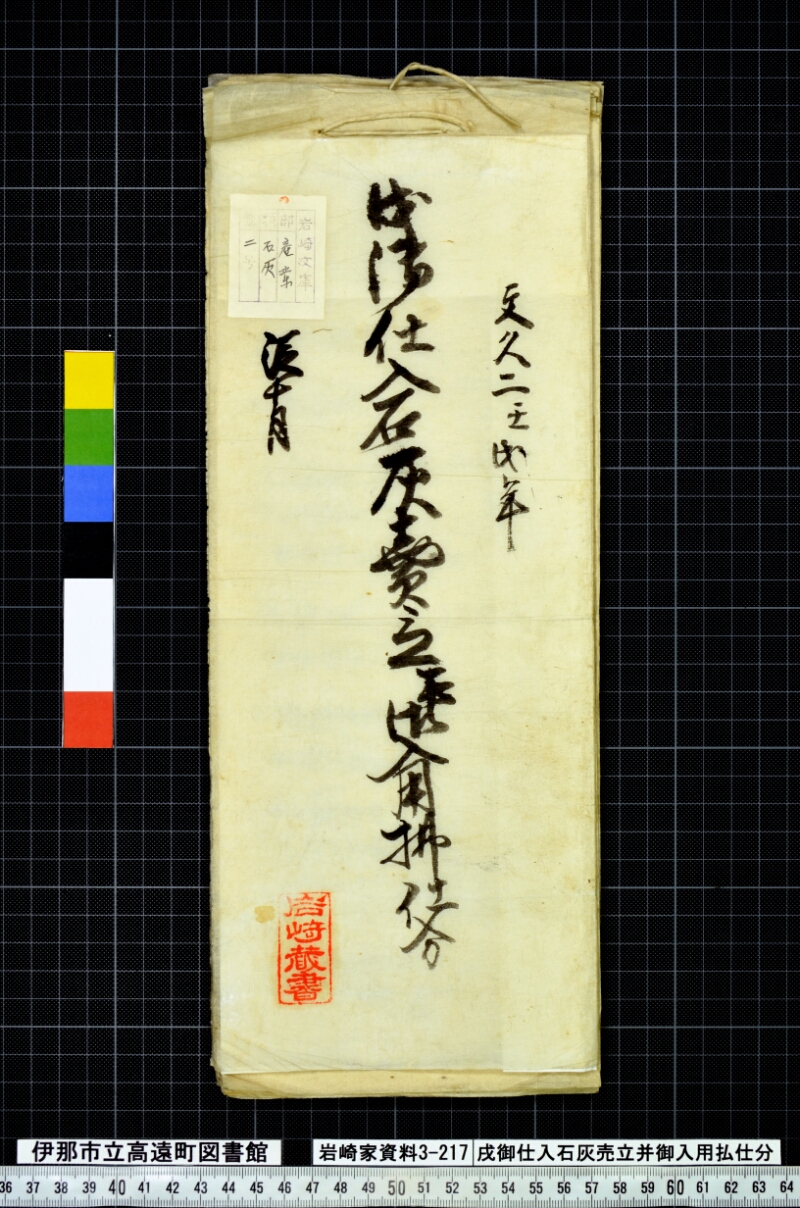 文久二壬戌年
戌御仕入石灰賣立并御入用拂仕分
辰十月
岩崎文庫
部 産業
石灰
二
岩崎蔵書
伊那市立高遠町図書館
岩崎家資料3-217
戌御仕入石灰売立并御入用払仕分
36 37 38 39 40 41 42 43 44 45 46 47 48 49 50 51 52 53 54 55 56 57 58 59 60 61 62 63 64